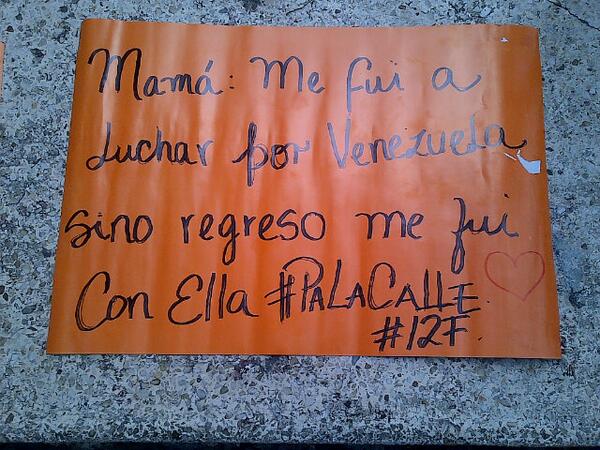 Mamá: Me fui a
Luchar por Venezuela
sino regreso me fui
Con Ella #PALACALLE.
#12F